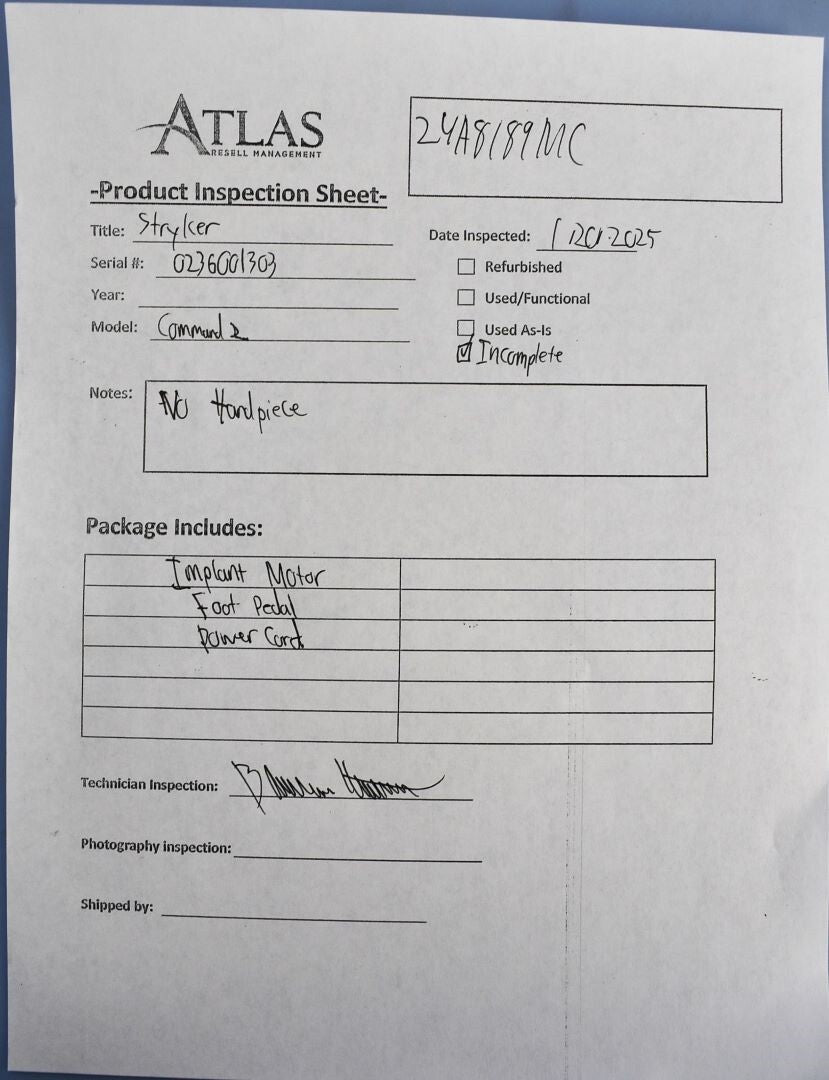 ATLAS
RESELL MANAGEMENT
24A8189MC
-Product Inspection Sheet-
Title: Stryker
Date Inspected: 1/20/2025
Serial #: 0236001303
Refurbished
Year:
Used/Functional
Model: Command 2
Used As-Is
Incomplete
Notes: No Handpiece
Package Includes:
Implant Motor
Foot Pedal
Power Cord
Technician Inspection:
Photography inspection:
Shipped by: